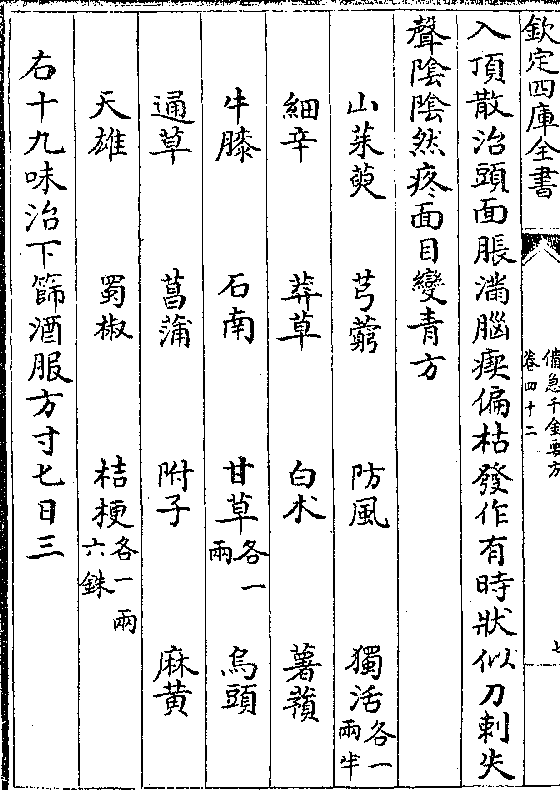 欽定四庫全書
備急千金要方
卷四十二
七
入頂散治頭面脹滿腦瘈偏枯發作有時狀似刀刺失
聲陰陰然疼面目變青方
山茱萸 芎藭 防風 獨活各一兩半
細辛 莽草 白朮 薯蕷
牛膝 石南 甘草各一兩 烏頭
通草 菖蒲 附子 麻黄
天雄 蜀椒 桔梗各一兩六銖
右十九味治下篩酒服方寸七日三